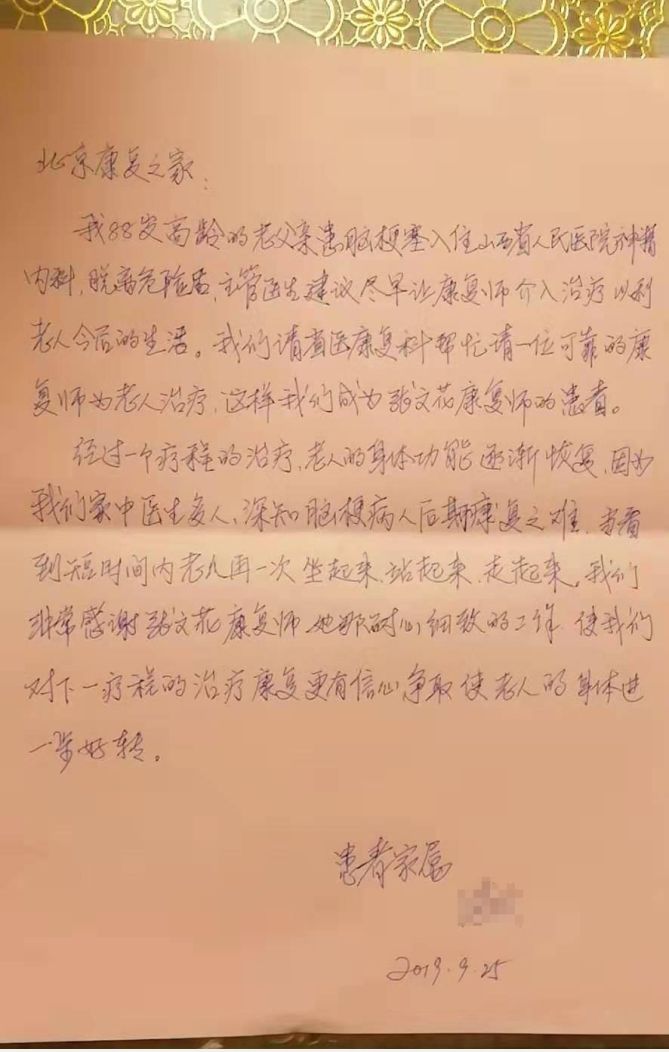 北京康复之家:
我88岁高龄的老父亲患脑梗塞入住山西省人民医院神精
内科,脱离危险后,主管医生建议尽早让康复师介入治疗以利
老人今后的生活。我们请省医康复科帮忙请一位可靠的康
复师为老人治疗,这样我们成为张文花康复师的患者。
经过一个疗程的治疗,老人的身体功能逐渐恢复,因为
我们家中医生多人,深知脑梗病人后期康复之难,当看
到短时间内老人再一次坐起来,站起来,走起来。我们
非常感谢张文花康复师,她那耐心细致的工作,使我们
对下一疗程的治疗康复更有信心争取使老人的身体进
一步好转。
患者家属
2019.9.25